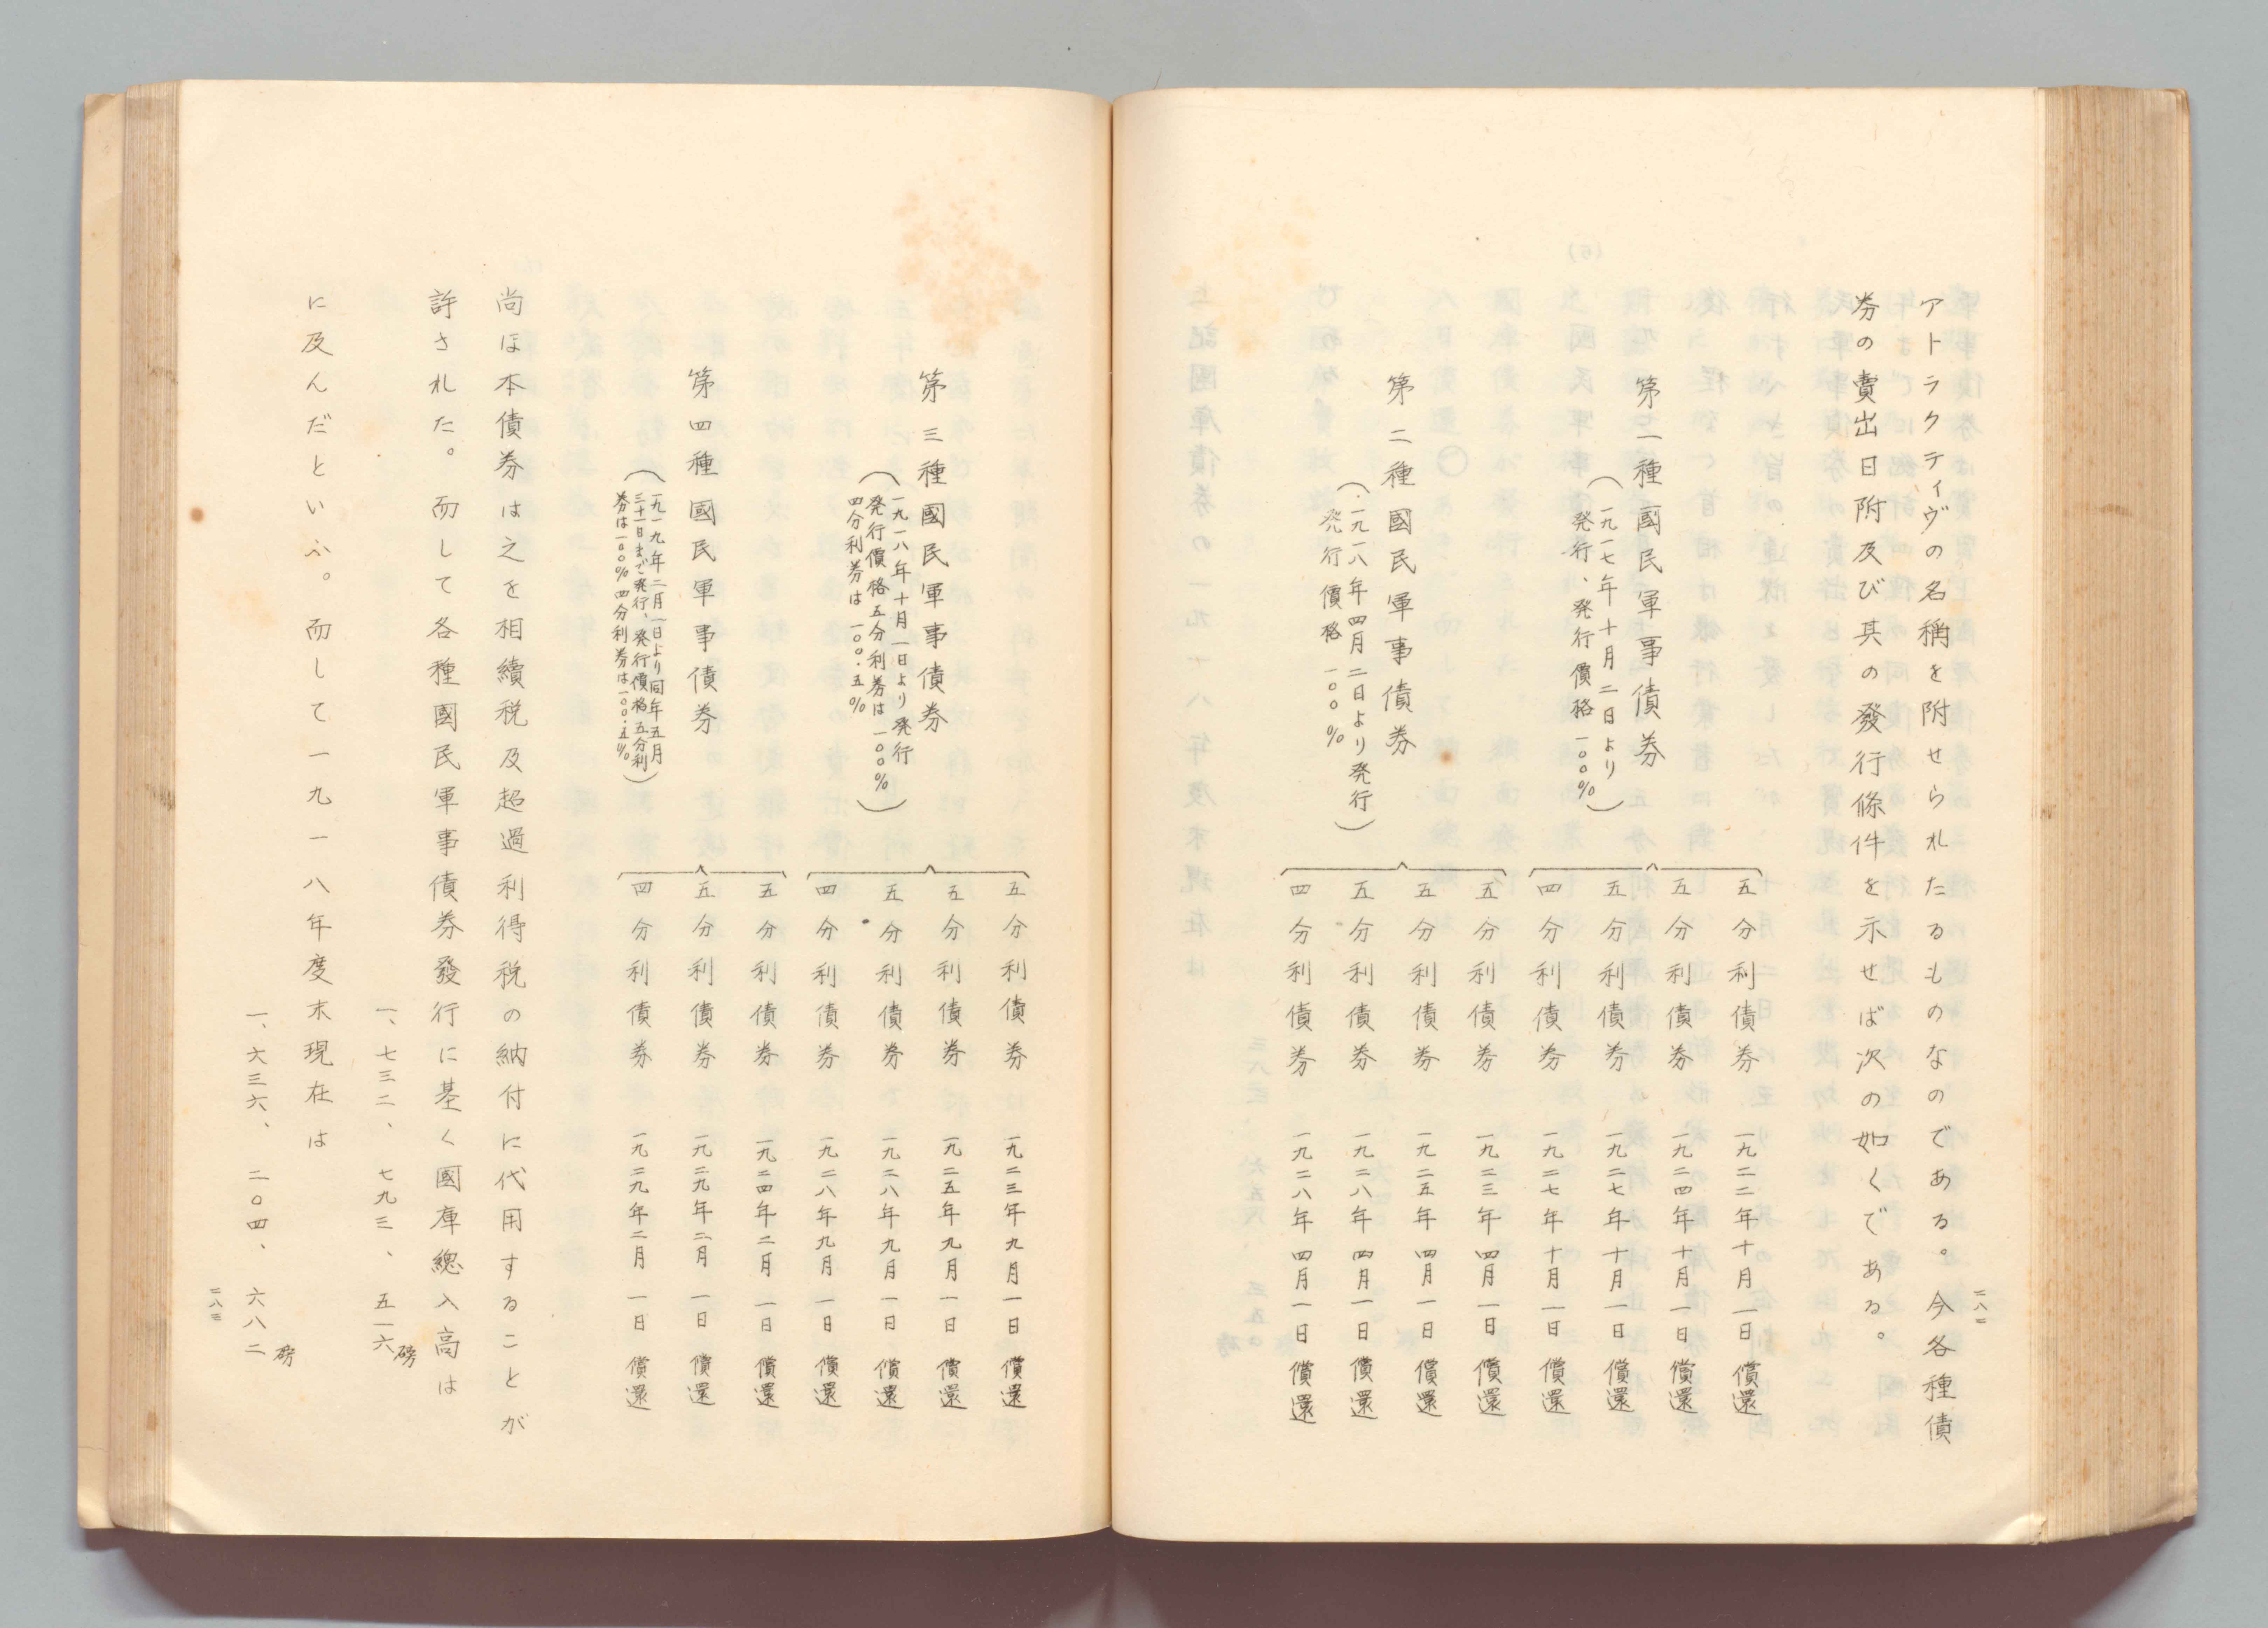 アトラクティヴの名稱を附せられたるものなのである。今各種債
券の賣出日附及び其の發行條件を示せば次の如くである。
第一種國民軍事債券
(一九一七年十月二日より
発行、発行價格一〇〇%)
五分利債券 一九二二年十月一日償還
五分利債券 一九二四年十月一日償還
五分利債券 一九二七年十月一日償還
四分利債券 一九二七年十月一日償還
第二種國民軍事債券
(一九一八年四月二日より発行)
発行價格一〇〇%
五分利債券 一九二三年四月一日償還
五分利債券 一九二五年四月一日償還
五分利債券 一九二八年四月一日償還
四分利債券 一九二八年四月一日償還
二八二
第三種國民軍事債券
(一九一八年十月一日より発行
発行價格五分利券は一〇〇%)
四分利券は一〇〇・五%
五分利債券 一九二三年九月一日償還
五分利債券 一九二五年九月一日償還
五分利債券 一九二八年九月一日償還
四分利債券 一九二八年九月一日償還
第四種國民軍事債券
(一九一九年二月一日より同年五月
三十一日まで発行、発行價格五分利
券は一〇〇%四分利券は一〇〇・五%)
五分利債券 一九二四年二月一日償還
五分利債券 一九二九年二月一日償還
四分利債券 一九二九年二月一日償還
尚ほ本債券は之を相續税及超過利得税の納付に代用することが
許された。而して各種國民軍事債券發行に基く國庫總入高は
一、七三二、七九三、五一六磅
に及んだといふ。而して一九一八年度末現在は
一、六三六、二〇四、六八二磅
二八三